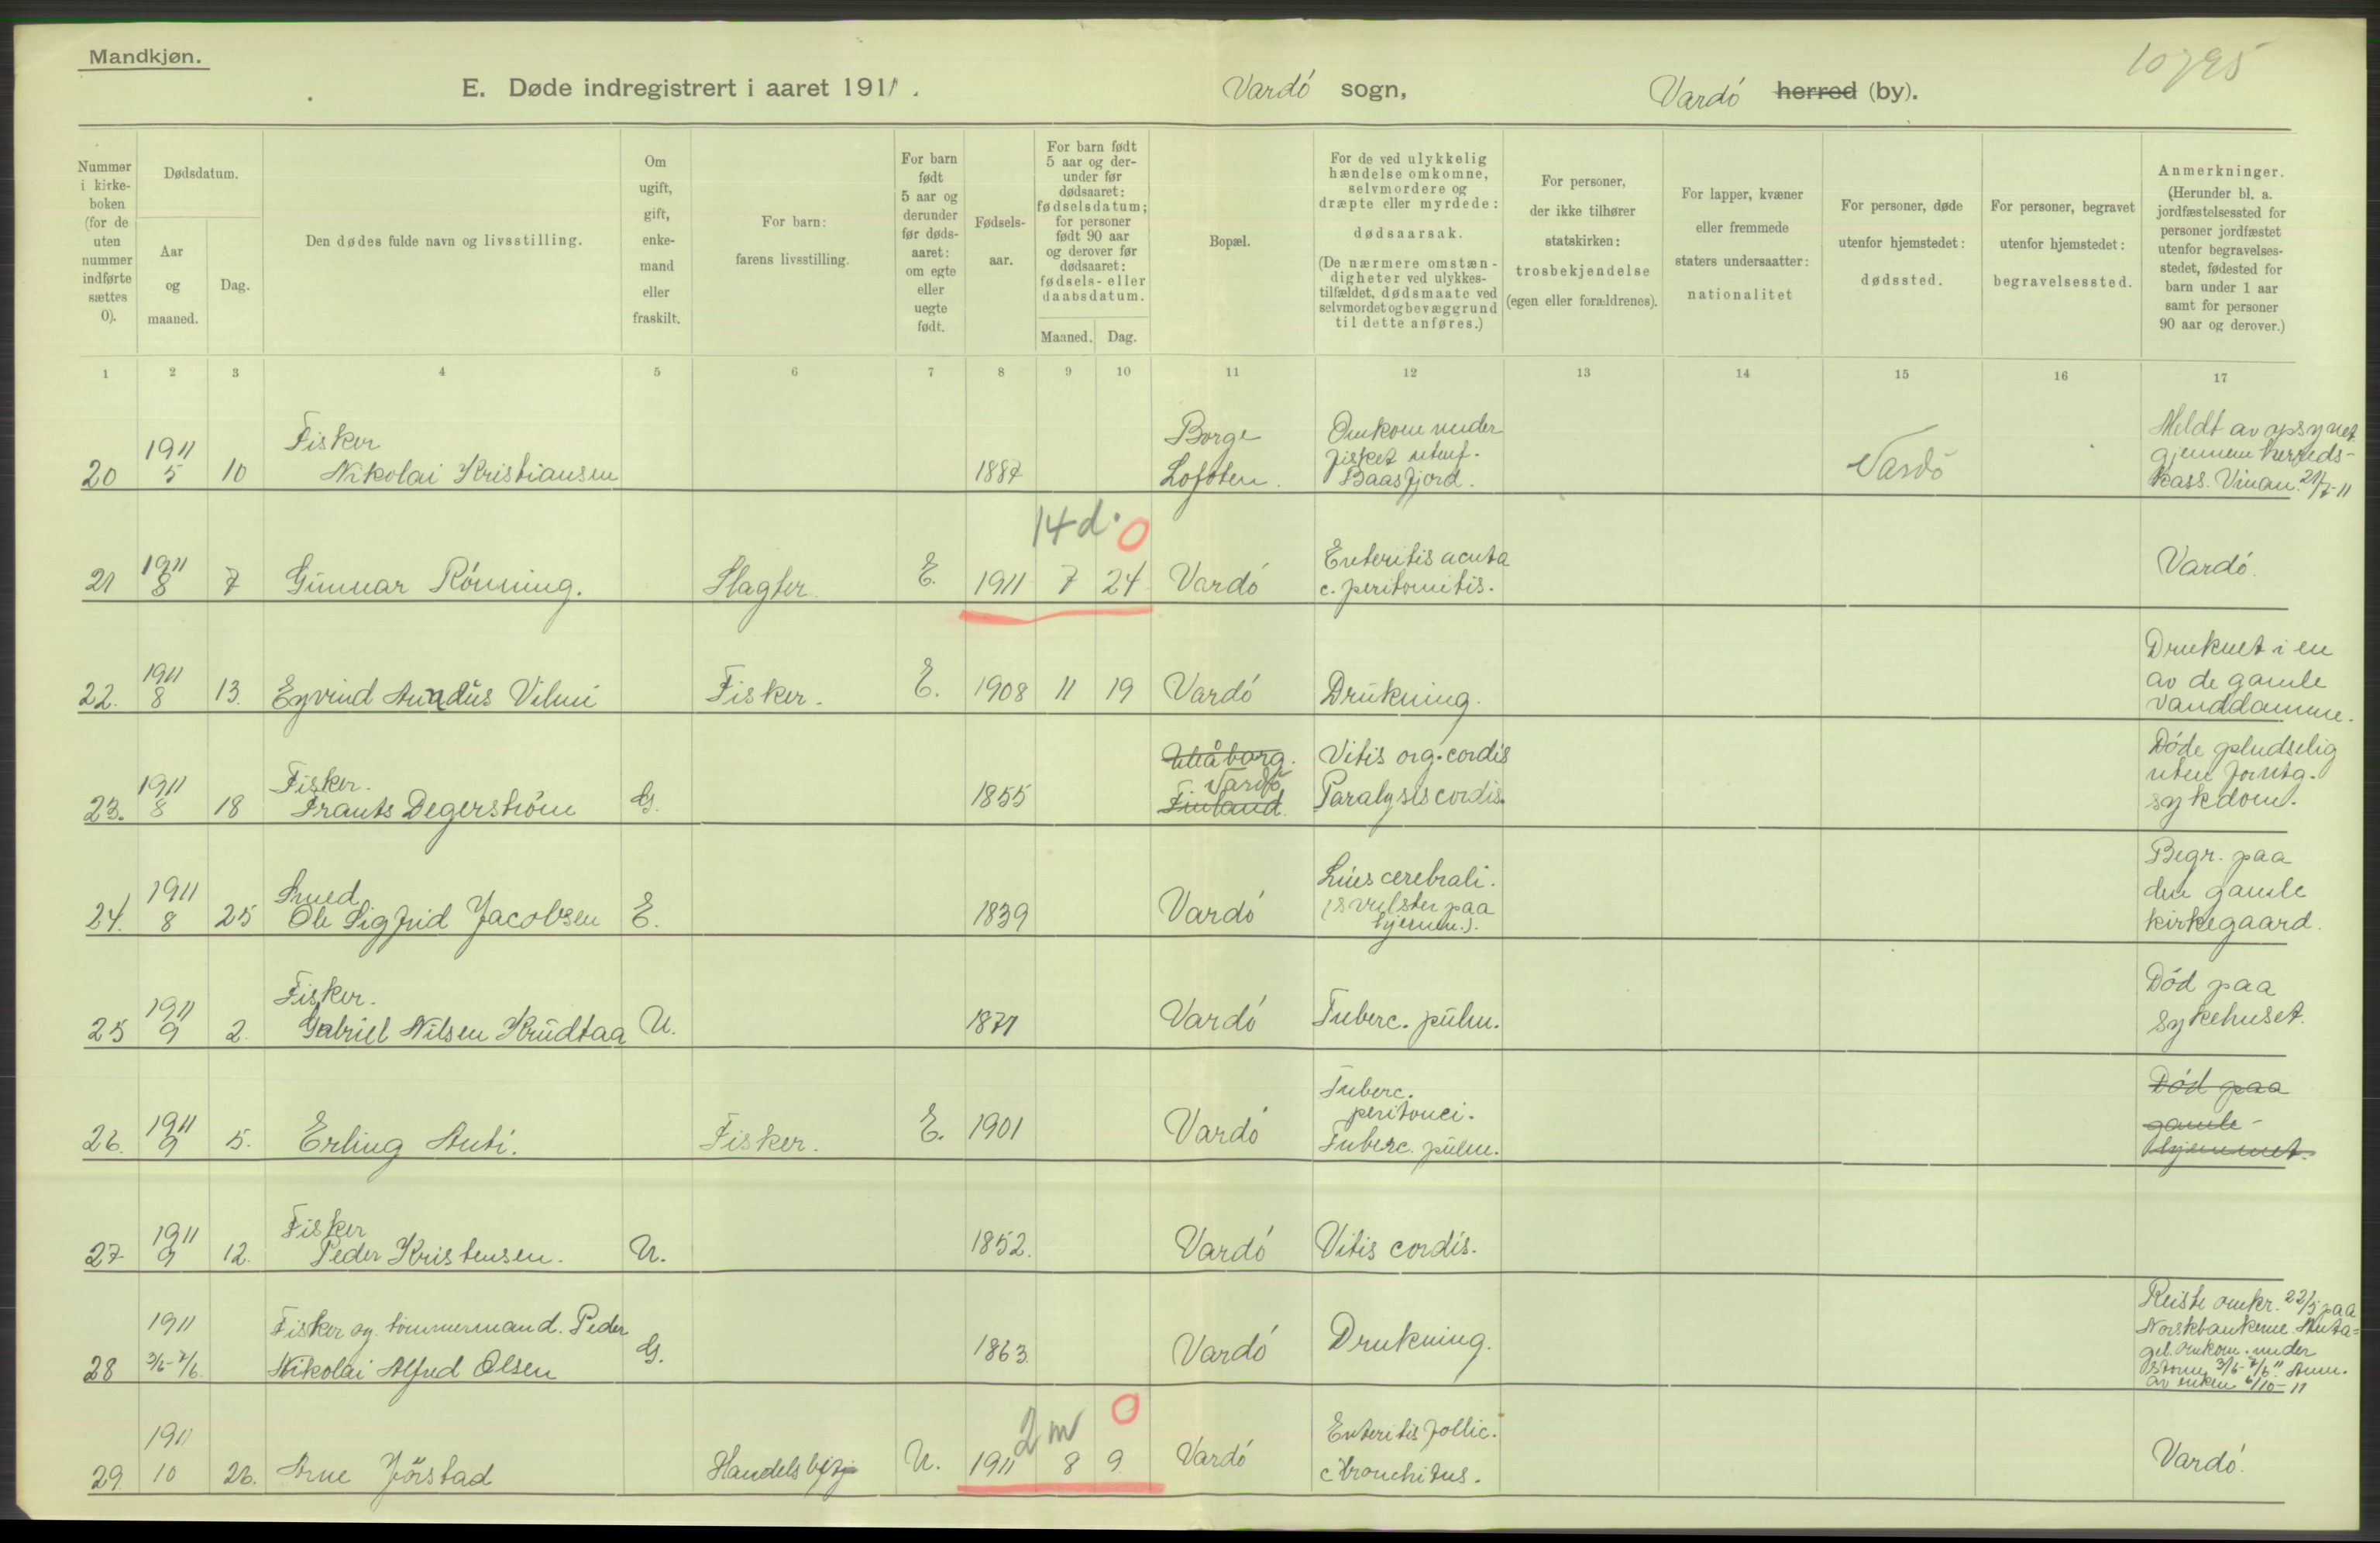 Mandkjøn.
10795
E. Døde indregistrert i aaret 1911.
Vardö sogn,
Vardö herred (by).
Nummer i kirke-boken (for de uten nummer indførte sættes 0).
Dødsdatum.
Aar og maaned.
Dag.
Den dødes fulde navn og livsstilling.
Om ugift, gift, enke-mand eller fraskilt.
For barn: farens livsstilling.
For barn født 5 aar og derunder før døds-aaret: om egte eller uegte født.
Fødsels-aar.
For barn født 5 aar og der-under før dødsaaret: fødselsdatum; for personer født 90 aar og derover før dødsaaret: fødsels- eller daabsdatum.
Maaned. Dag.
Bopæl.
For de ved ulykkelig hændelse omkomne, selvmordere og dræpte eller myrdede: dødsaarsak. (De nærmere omstæn-digheter ved ulykkes-tilfældet, dødsmaate ved selvmordet og bevæggrund til dette anføres.)
For personer, der ikke tilhører statskirken: trosbekjendelse (egen eller forældrenes).
For lapper, kvæner eller fremmede staters undersaatter: nationalitet
For personer, døde utenfor hjemstedet: dødssted.
For personer, begravet utenfor hjemstedet: begravelsessted.
Anmerkninger. (Herunder bl. a. jordfæstelsessted for personer jordfæstet utenfor begravelses-stedet, fødested for barn under 1 aar samt for personer 90 aar og derover.)
1 2 3 4 5 6 7 8 9 10 11 12 13 14 15 16 17
20 1911 5 10 Fisker Nikolai Kristiansen 1887 Borge Lofoten. Omkom under fisket utenf. Baasfjord. Vardö Meldt av opsynet gjennem herreds-kass. Vinan. 21/7-11
14 d. 0
21 1911 8 7 Gunnar Rönning. Slagter E. 1911 7 24 Vardö Enteritis acuta c. peritonitis. Vardö.
22. 1911 8 13. Eyvind Aundus Vilmi Fisker. E. 1908 11 19 Vardö Drukning. Druknet i en av de gamle vanddamme.
23. 1911 8 18 Fisker. Frants Degerström G. 1855 Uleåborg. Vardö Finland. Vitis org. cordis Paralysis cordis. Döde pludselig uten forutg. sykdom.
24. 1911 8 25 Smed Ole Sigfrid Jacobsen E. 1839 Vardö Lues cerebrali. (svulster paa hjernen.). Begr. paa den gamle kirkegaard.
25 1911 9 2. Fisker. Gabriel Nilsen Krudtaa U. 1871 Vardö Tuberc. pulm. Död paa sykehuset.
26. 1911 9 5. Erling Anti. Fisker. E. 1901 Vardö Tuberc. peritonei. Tuberc. pulm. Död paa gamle-hjemmet.
27 1911 9 12. Fisker Peder Kristensen. U. 1852. Vardö Vitis cordis.
28 1911 3/6-7/6 Fisker og tömmermand. Peder Nikolai Alfred Olsen G. 1863. Vardö Drukning. Reiste omkr. 22/5 paa Norskbankerne. Anta-gel. omkom. under storm 3/6-7/6 11. Anm. av enken 6/10-11
2 m 0
29. 1911 10 26. Arne Jörstad Handelsbetj U. 1911 8 9. Vardö Enteritis follic. c bronchitus. Vardö.